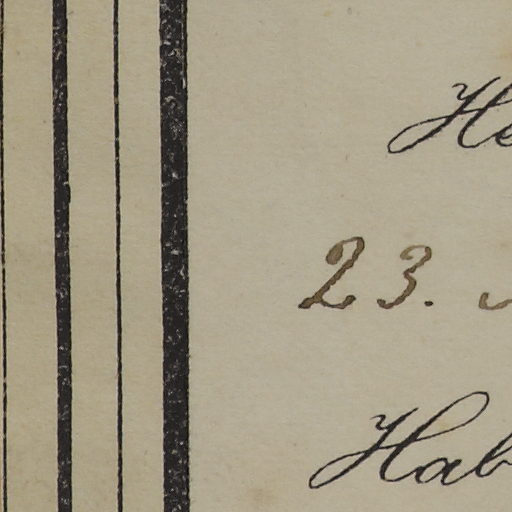 He
23.
Hab